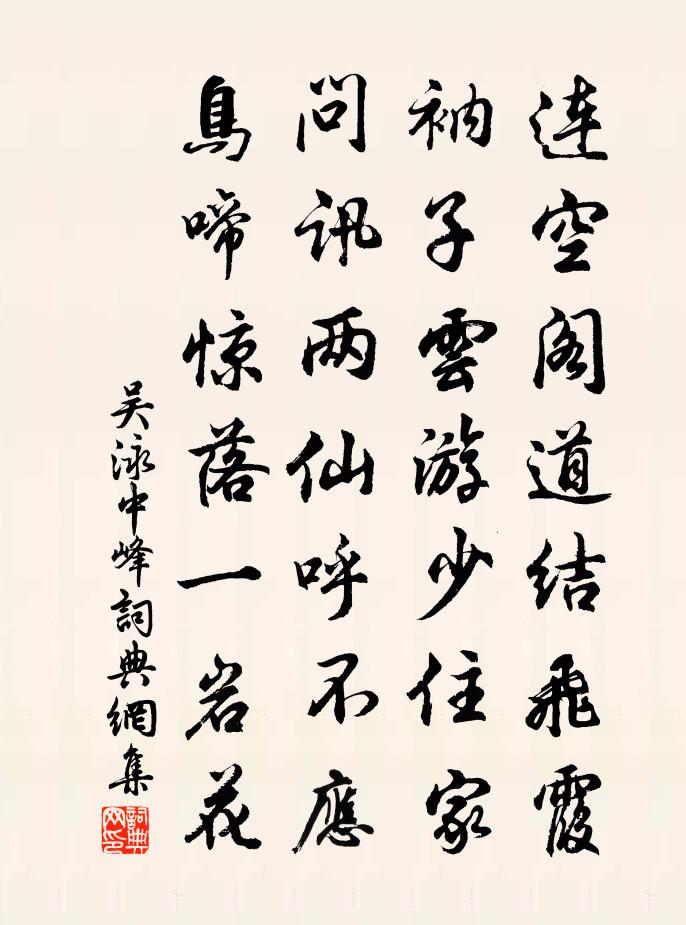 連空阁道结飛霞
衲子雲游少住家
问讯两仙呼不應
鳥啼惊落一岩花
吴泳中峰詞典網集
詞典网印